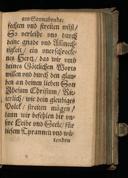 am Sonnabende.
fechten und streiten müst/
So verleihe uns durch
deine gnade und Allmech-
tigkeit/ ein unerschrocke-
nes Hertz/ das wir und
deines Göttlichen Worts
willen und durch den glau-
ben an deinen lieben Son
Jhesum Christum/ Rit-
terlich/ wie dem gleubiges
Volck/ streiten mögen/
denn wir befehlen dir un-
sere Leibe und Seele/ für
diesem Tyrannen und wü-
tenden